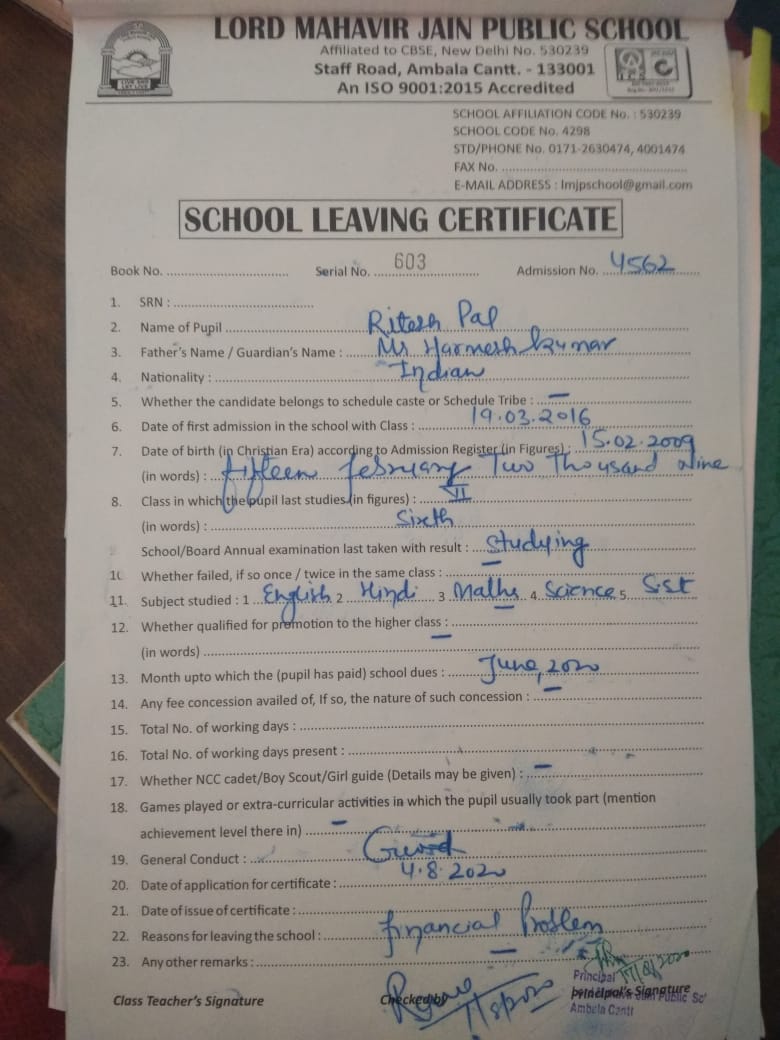 LORD MAHAVIR JAIN PUBLIC SCHOOL
Affiliated to CBSE, New Delhi No. 530239
Staff Road, Ambala Cantt. - 133001
An ISO 9001:2015 Accredited
SCHOOL AFFILIATION CODE No. : 530239
SCHOOL CODE No. 4298
STD/PHONE No. 0171-2630474, 4001474
FAX No. ....................
E-MAIL ADDRESS : lmjpschool@gmail.com
SCHOOL LEAVING CERTIFICATE
Book No. .................... Serial No. 603 Admission No. 4562
1. SRN : ....................
2. Name of Pupil Ritesh Pal
3. Father's Name / Guardian's Name : Mr Harmesh kumar
4. Nationality : Indian
5. Whether the candidate belongs to schedule caste or Schedule Tribe : —
6. Date of first admission in the school with Class : 19.03.2016
7. Date of birth (in Christian Era) according to Admission Register (in Figures) : 15.02.2009
(in words) : fifteen february Two Thousand Nine
8. Class in which the pupil last studies (in figures) : VI
(in words) : Sixth
School/Board Annual examination last taken with result : Studying
10. Whether failed, if so once / twice in the same class : —
11. Subject studied : 1 English 2 Hindi 3 Maths 4. Science 5. S.st
12. Whether qualified for promotion to the higher class : —
(in words) —
13. Month upto which the (pupil has paid) school dues : June, 2020
14. Any fee concession availed of, If so, the nature of such concession : —
15. Total No. of working days : ....................
16. Total No. of working days present : ....................
17. Whether NCC cadet/Boy Scout/Girl guide (Details may be given) : —
18. Games played or extra-curricular activities in which the pupil usually took part (mention
achievement level there in) —
19. General Conduct : Good
20. Date of application for certificate : 4.8.2020
21. Date of issue of certificate : ....................
22. Reasons for leaving the school : financial Problem
23. Any other remarks : —
Class Teacher's Signature Checked by Principal's Signature
Principal
Public Sc
Ambala Cantt